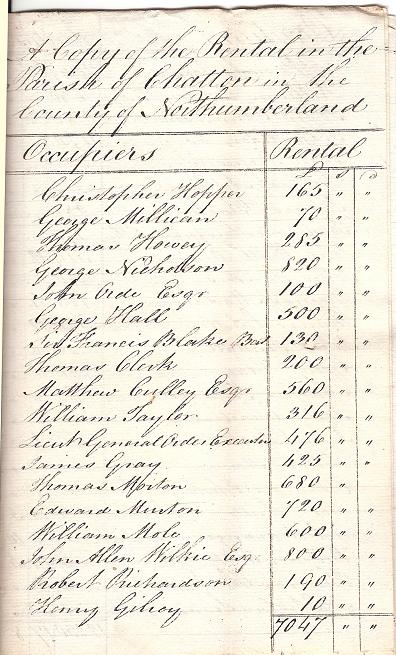 A Copy of the Rental in the
Parish of Chatton in the
County of Northumberland
Occupiers Rental
£ s d
Christopher Hopper 165 " "
George Millican 70 " "
Thomas Howey 285 " "
George Nicholson 820 " "
John Orde Esqr 100 " "
George Hall 500 " "
Sir Francis Blake Bart 130 " "
Thomas Clerk 200 " "
Matthew Culley Esqr 560 " "
William Taylor 316 " "
Lieut General Ordes Executors 476 " "
James Gray 425 " "
Thomas Morton 680 "
Edward Murton 720 " "
William Mole 600 " "
John Allen Wilkie Esq 800 " "
Robert Richardson 190 " "
Henry Gilroy 10 " "
7047 " "